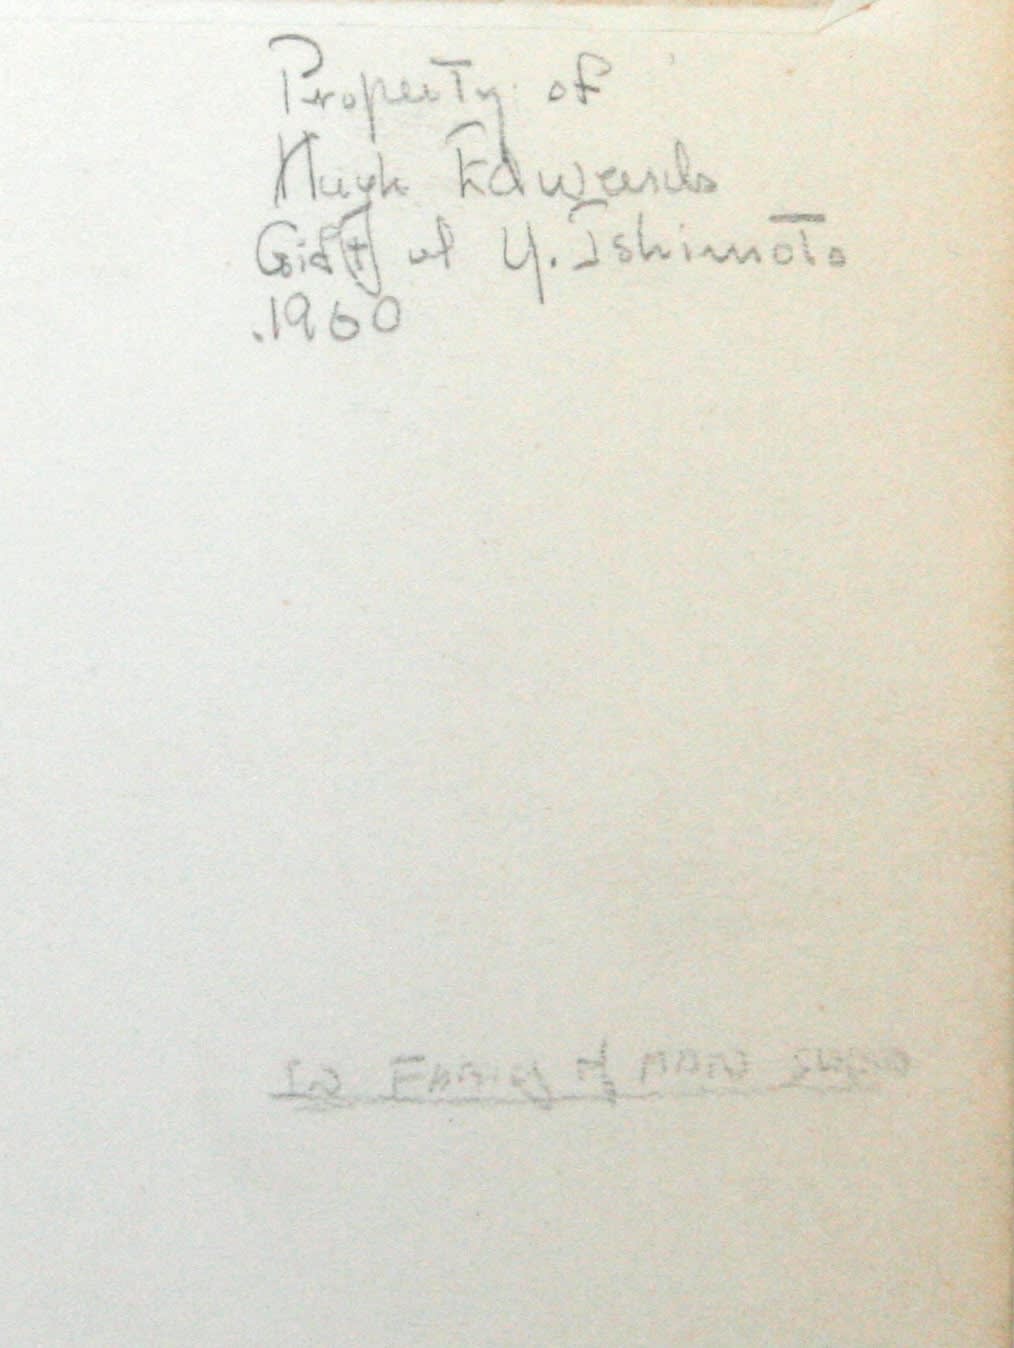 Property of
Hugh Edwards
Gif[t] of Y. Ishimoto
.1960